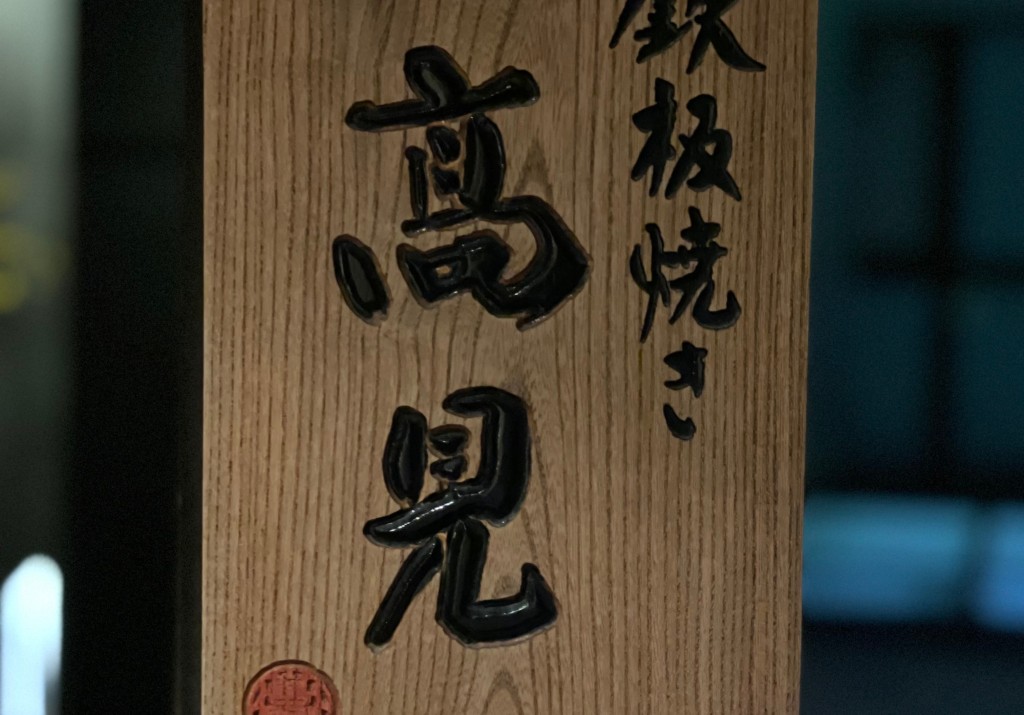 鉄板焼き
高見